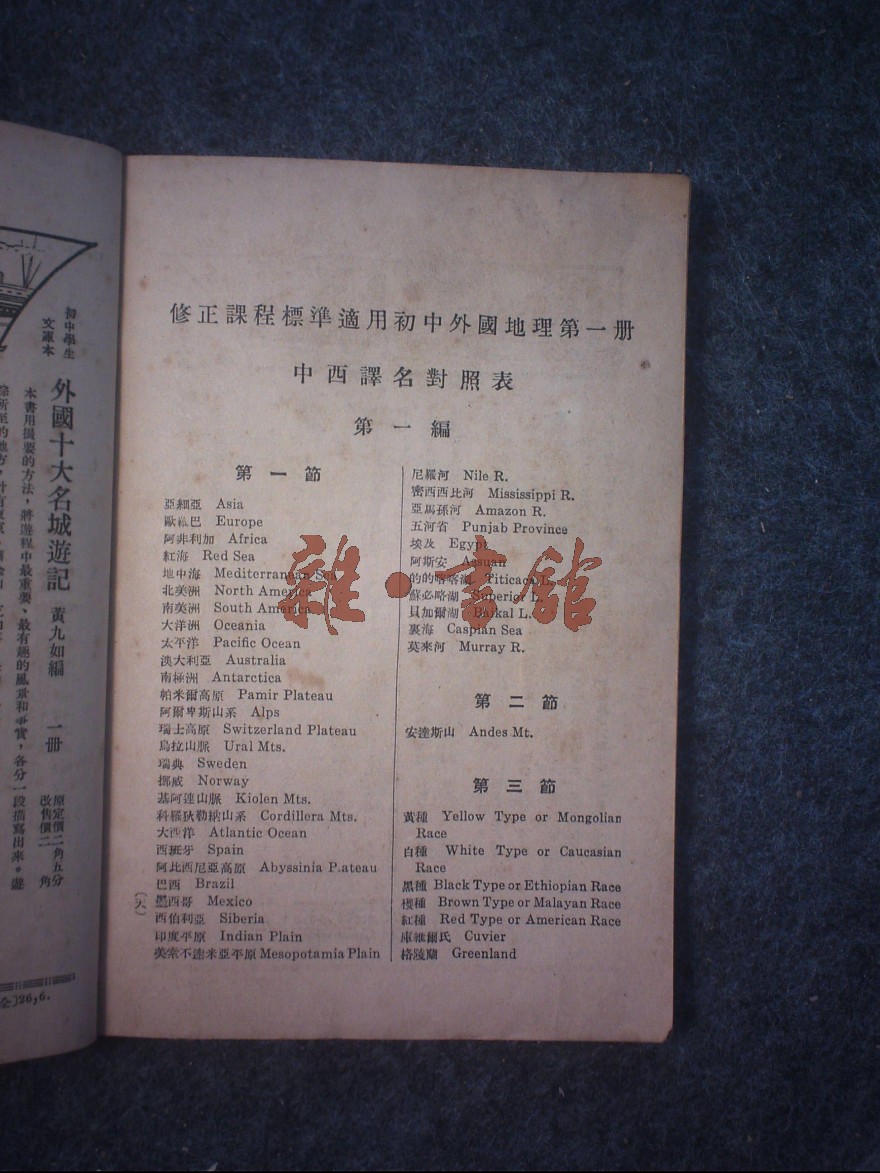 修正課程標準適用初中外國地理第一册
中西譯名對照表
第一編
第一節
亞細亞 Asia
歐羅巴 Europe
阿非利加 Africa
紅海 Red Sea
地中海 Mediterranean Sea
北美洲 North America
南美洲 South America
大洋洲 Oceania
太平洋 Pacific Ocean
澳大利亞 Australia
南極洲 Antarctica
帕米爾高原 Pamir Plateau
阿爾卑斯山系 Alps
瑞士高原 Switzerland Plateau
烏拉山脈 Ural Mts.
瑞典 Sweden
挪威 Norway
基阿連山脈 Kiolen Mts.
科羅狄勒納山系 Cordillera Mts.
大西洋 Atlantic Ocean
西班牙 Spain
阿比西尼亞高原 Abyssinia Plateau
巴西 Brazil
墨西哥 Mexico
西伯利亞 Siberia
印度平原 Indian Plain
美索不達米亞平原 Mesopotamia Plain
尼羅河 Nile R.
密西西比河 Mississippi R.
亞馬孫河 Amazon R.
五河省 Punjab Province
埃及 Egypt
阿斯安 Assuan
的的喀喀湖 Titicaca L.
蘇必略湖 Superior L.
貝加爾湖 Baikal L.
裏海 Caspian Sea
莫來河 Murray R.
第二節
安達斯山 Andes Mt.
第三節
黃種 Yellow Type or Mongolian
Race
白種 White Type or Caucasian
Race
黑種 Black Type or Ethiopian Race
椶種 Brown Type or Malayan Race
紅種 Red Type or American Race
庫維爾氏 Cuvier
格陵蘭 Greenland
雜·書館
初中學生
文庫本
外國十大名城遊記 黃九如編 一册
原定價二角五分
改售價二角
本書用撮要的方法，將遊程中最重要、最有趣的風景和事實，各分一段描寫出來。遊
26,6.